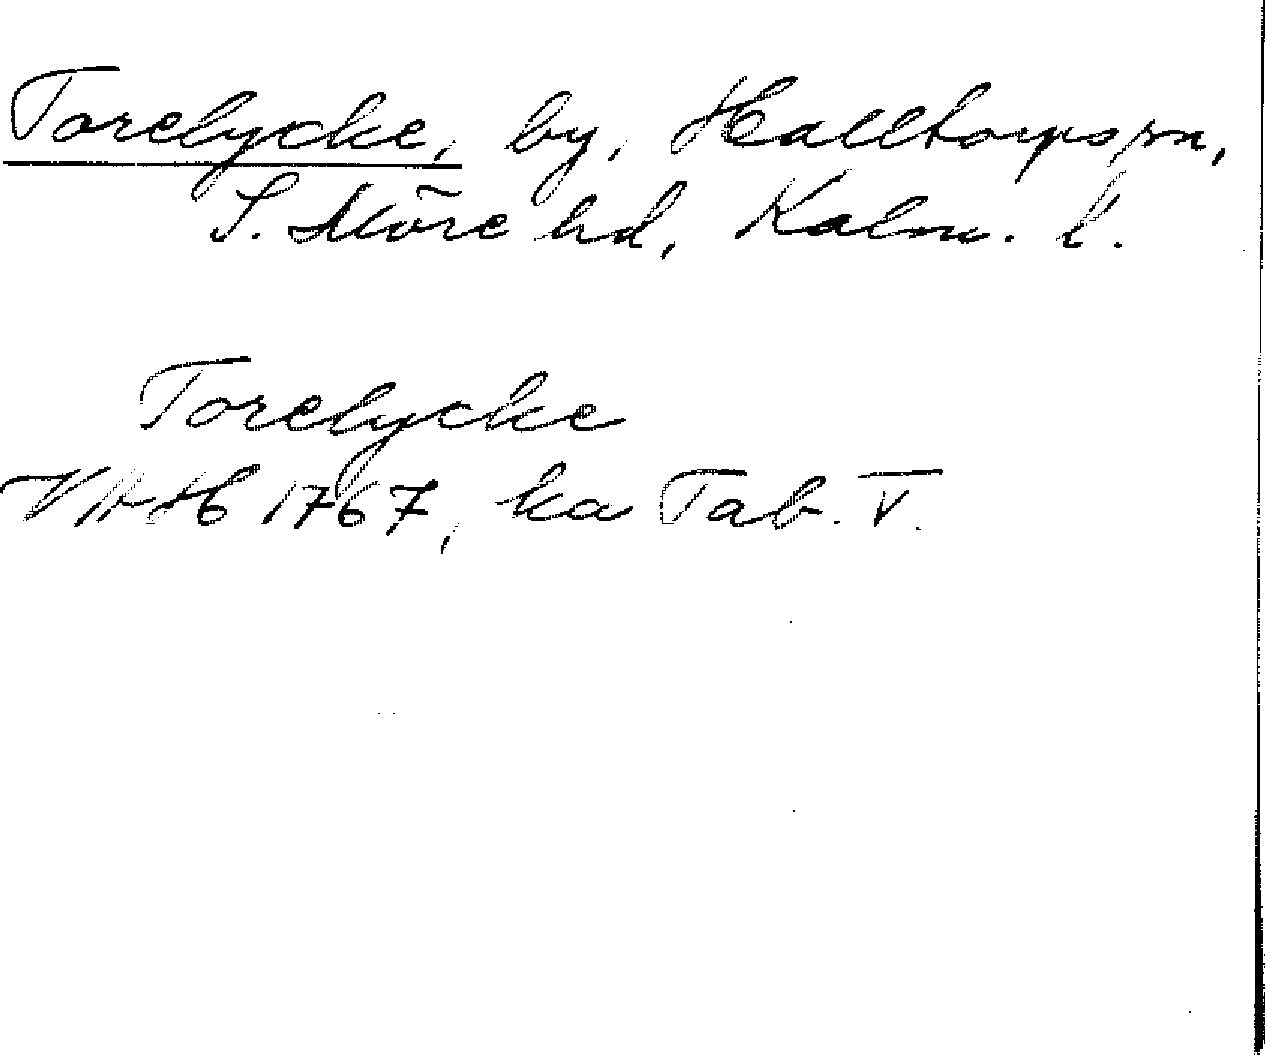 Torelycke, by, Halltorps sn,
S. Möre hd, Kalm. l.
Torelycke
VAH 1767, ka Tab. V.